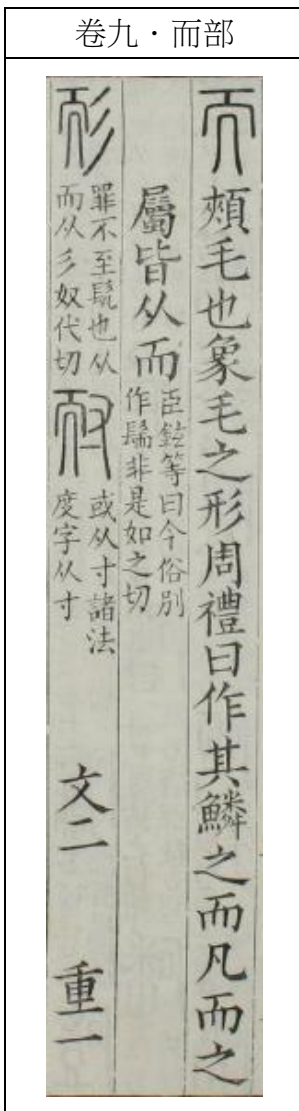 卷九·而部
而頰毛也象毛之形周禮曰作其鱗之而凡而之
屬皆从而臣鉉等曰今俗別
作髵非是如之切
耏罪不至髡也从
而从彡奴代切
耐或从寸諸法
度字从寸
文二 重一